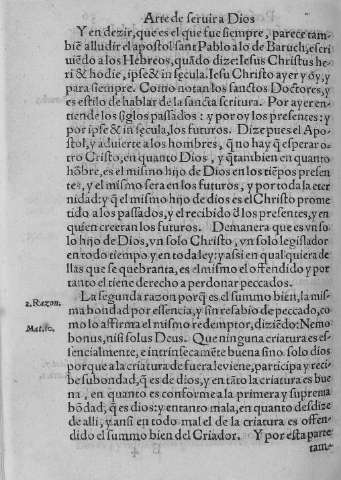 Arte de seruir a Dios
Y en dezir, que es el que fue siempre, parece tam-
biẽ alludir el apostol sant Pablo a lo de Baruch; escri
uiẽdo a los Hebreos, quãdo dize: Iesus Christus he-
ri & hodie, ipse & in secula. Iesu Christo ayer y oy, y
para siempre. Como notan los sanctos Doctores, y
es estilo de hablar de la sancta scritura. Por ayer en-
tiende los siglos passados: y por oy los presentes: y
por ipse & in secula, los futuros. Dize pues el Apo-
stol, y aduierte a los hombres, q̃ no hay q̃ esperar o-
tro Cristo, en quanto Dios, y q̃ tambien en quanto
hõbre, es el mismo hijo de Dios en los tiẽpos presen
tes, y el mismo sera en los futuros, y por toda la eter
nidad: y q̃ el mismo hijo de dios es el Christo prome
tido a los passados, y el recibido d̃ los presentes, y en
quien creeran los futuros. De manera que es vn so-
lo hijo de Dios, vn solo Christo, vn solo legislador
en todo tiempo y en toda ley: y assi en qualquiera de
llas que se quebranta, es el mismo el offendido y por
tanto el tiene derecho a perdonar peccados.
2. Razon. La segunda razon porq̃ es el summo bien, la mis-
ma bondad por essencia, y sin resabio de peccado, co
Mat. 10. mo lo affirma el mismo redemptor, diziẽdo: Nemo
bonus, nisi solus Deus. Que ninguna criatura es es-
sencialmente, e intrinsecamẽte buena sino solo dios
porque a la criatura de fuera le viene, participa y reci
be su bondad, q̃ es de dios, y en tãto la criatura es bue
na, en quanto es conforme a la primera y suprema
bõdad, q̃ es dios: y en tanto mala, en quanto desdize
de alli, y ansi en todo mal de la criatura es offen-
dido el summo bien del Criador. Y por esta parte
tam-